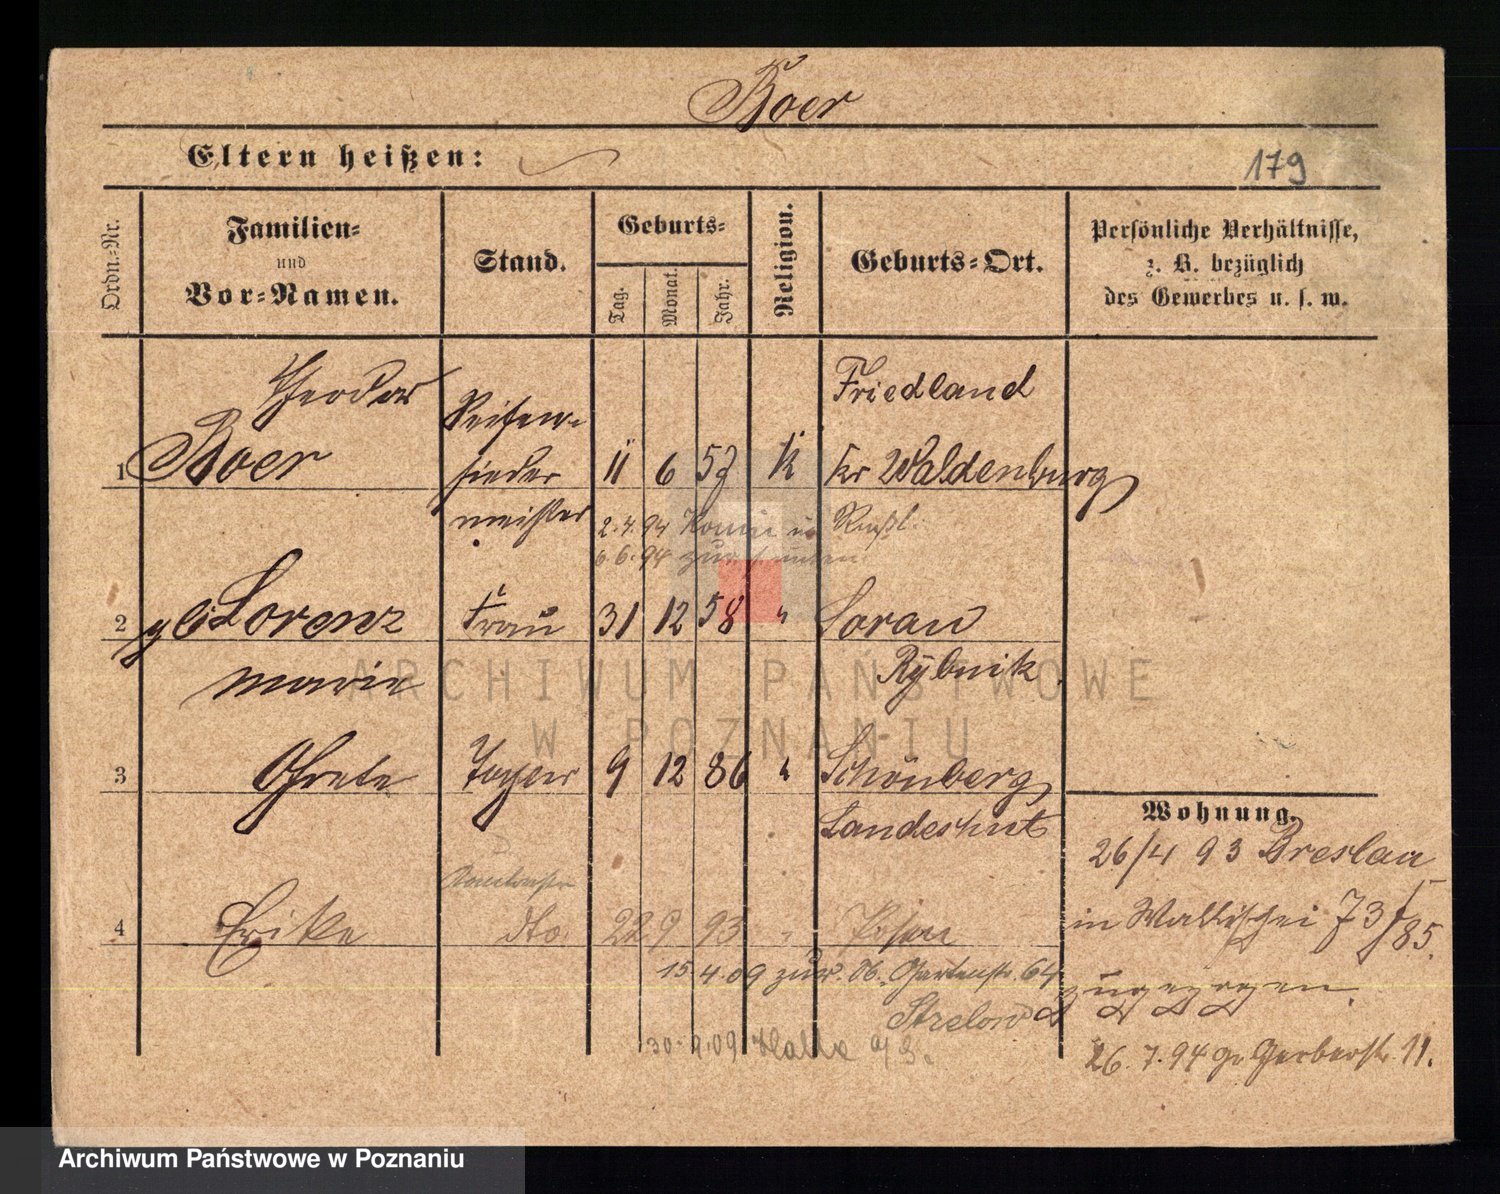 Boer
Eltern heißen:
179
Ordn.-Nr.
Familien-
und
Vor-Namen.
Stand.
Geburts-
Tag.
Monat.
Jahr.
Religion.
Geburts-Ort.
Persönliche Verhältnisse,
z. B. bezüglich
des Gewerbes u. s. w.
Theodor
Seifen-
Friedland
1 Boer sieder 11 6 57 K Kr Waldenburg
meister
2.4.94
6.6.94
2 gb Lorenz Frau 31 12 58 " Sorau
Marie
Rybnik
3 Grete Tochter 9 12 86 " Schönberg
Landeshut
Wohnung.
26/4 93 Breslau
4 Erike dto 22 9 93 " Posen
in Wallischei 73/85.
15.4.09 zur. Gartenstr. 64
zugezogen.
Strelow
30.9.09 Halle a/S.
26.7.94 gr Gerberstr. 11.
ARCHIWUM PAŃSTWOWE
W POZNANIU
Archiwum Państwowe w Poznaniu